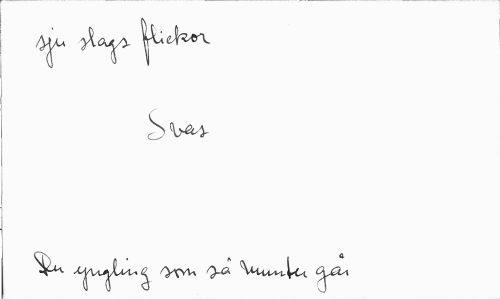 sju slags flickor
Svas
Du yngling som så munter går